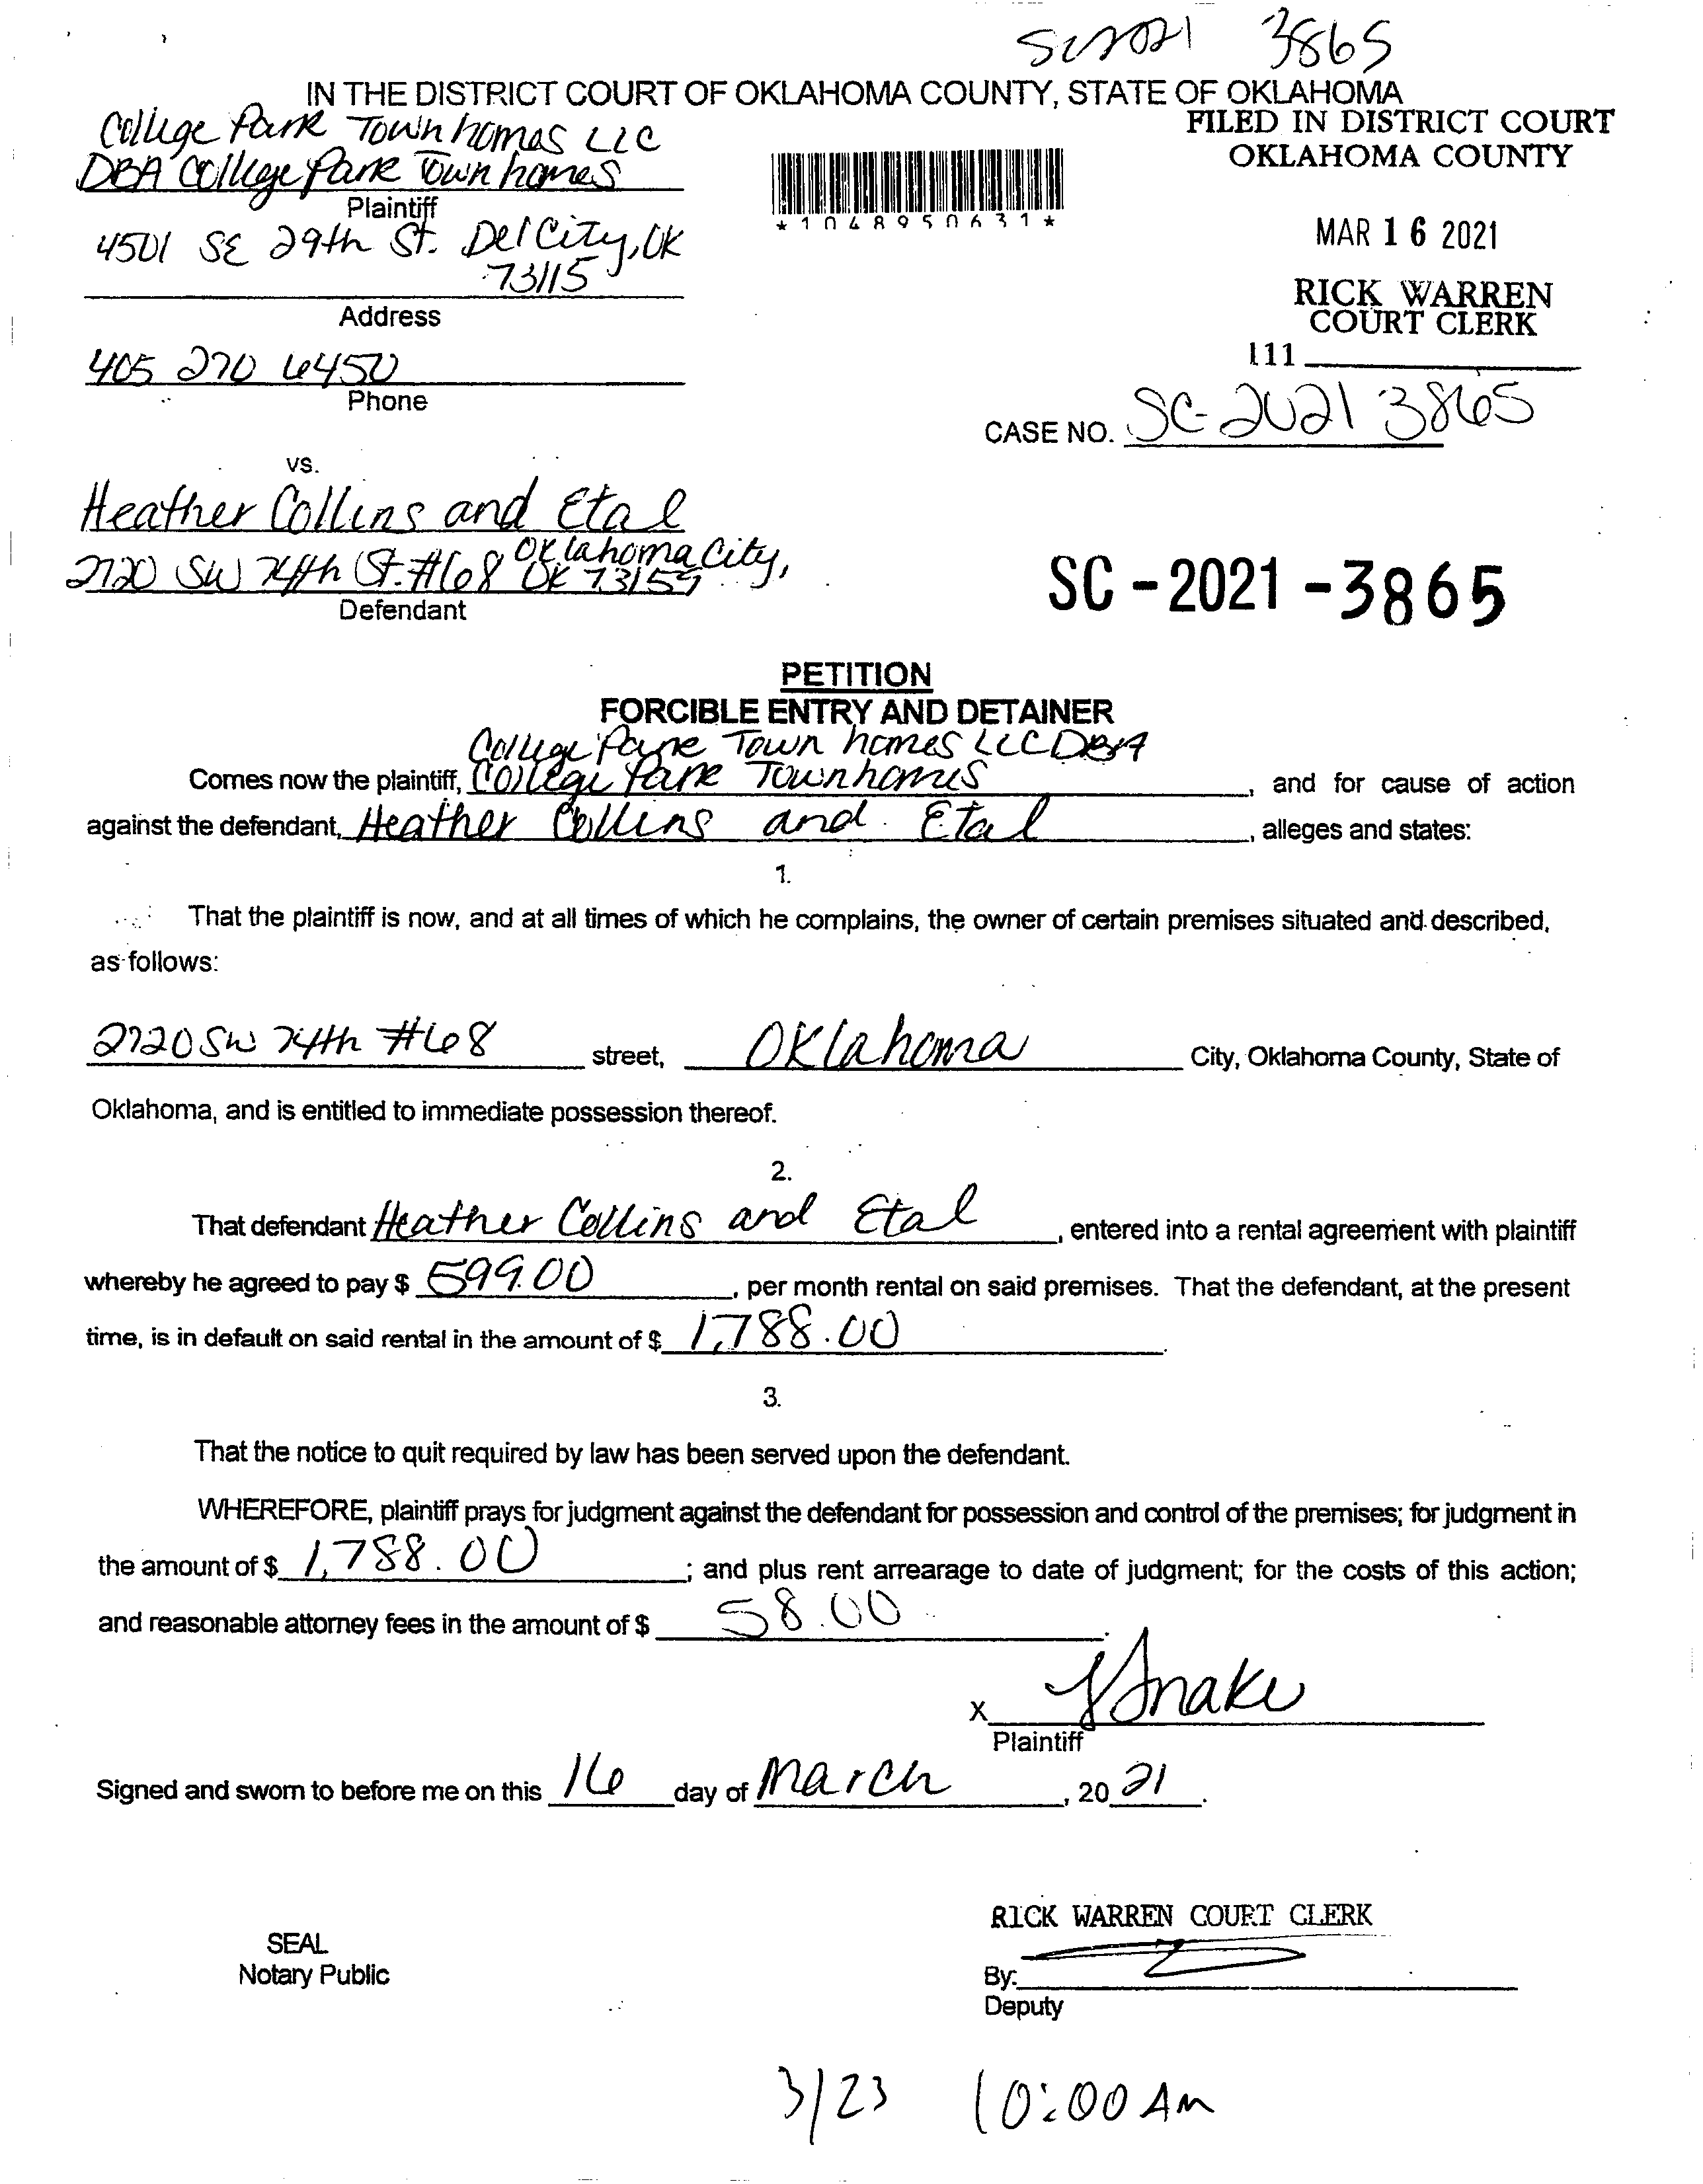 SC2021 3865
IN THE DISTRICT COURT OF OKLAHOMA COUNTY, STATE OF OKLAHOMA
College Park Townhomes LLC
DBA College Park Townhomes
Plaintiff
4501 SE 29th St. Del City, OK
73115
Address
405 270 6450
Phone
FILED IN DISTRICT COURT
OKLAHOMA COUNTY
*1048950631*
MAR 16 2021
RICK WARREN
COURT CLERK
111
CASE NO. SC-2021 3865
vs.
Heather Collins and Etal
2720 SW 74th St. #68 Oklahoma City,
OK 73159
Defendant
SC-2021-3865
PETITION
FORCIBLE ENTRY AND DETAINER
College Park Town homes LLC DBA
Comes now the plaintiff, College Park Townhomes, and for cause of action
against the defendant, Heather Collins and Etal, alleges and states:
1.
That the plaintiff is now, and at all times of which he complains, the owner of certain premises situated and described,
as follows:
2720 SW 74th #68 street, Oklahoma City, Oklahoma County, State of
Oklahoma, and is entitled to immediate possession thereof.
2.
That defendant Heather Collins and Etal, entered into a rental agreement with plaintiff
whereby he agreed to pay $ 599.00, per month rental on said premises. That the defendant, at the present
time, is in default on said rental in the amount of $ 1,788.00.
3.
That the notice to quit required by law has been served upon the defendant.
WHEREFORE, plaintiff prays for judgment against the defendant for possession and control of the premises; for judgment in
the amount of $ 1,788.00; and plus rent arrearage to date of judgment; for the costs of this action;
and reasonable attorney fees in the amount of $ 58.00.
X
Plaintiff
Signed and sworn to before me on this 16 day of March, 20 21.
SEAL
Notary Public
RICK WARREN COURT CLERK
By:
Deputy
3/23 10:00 AM